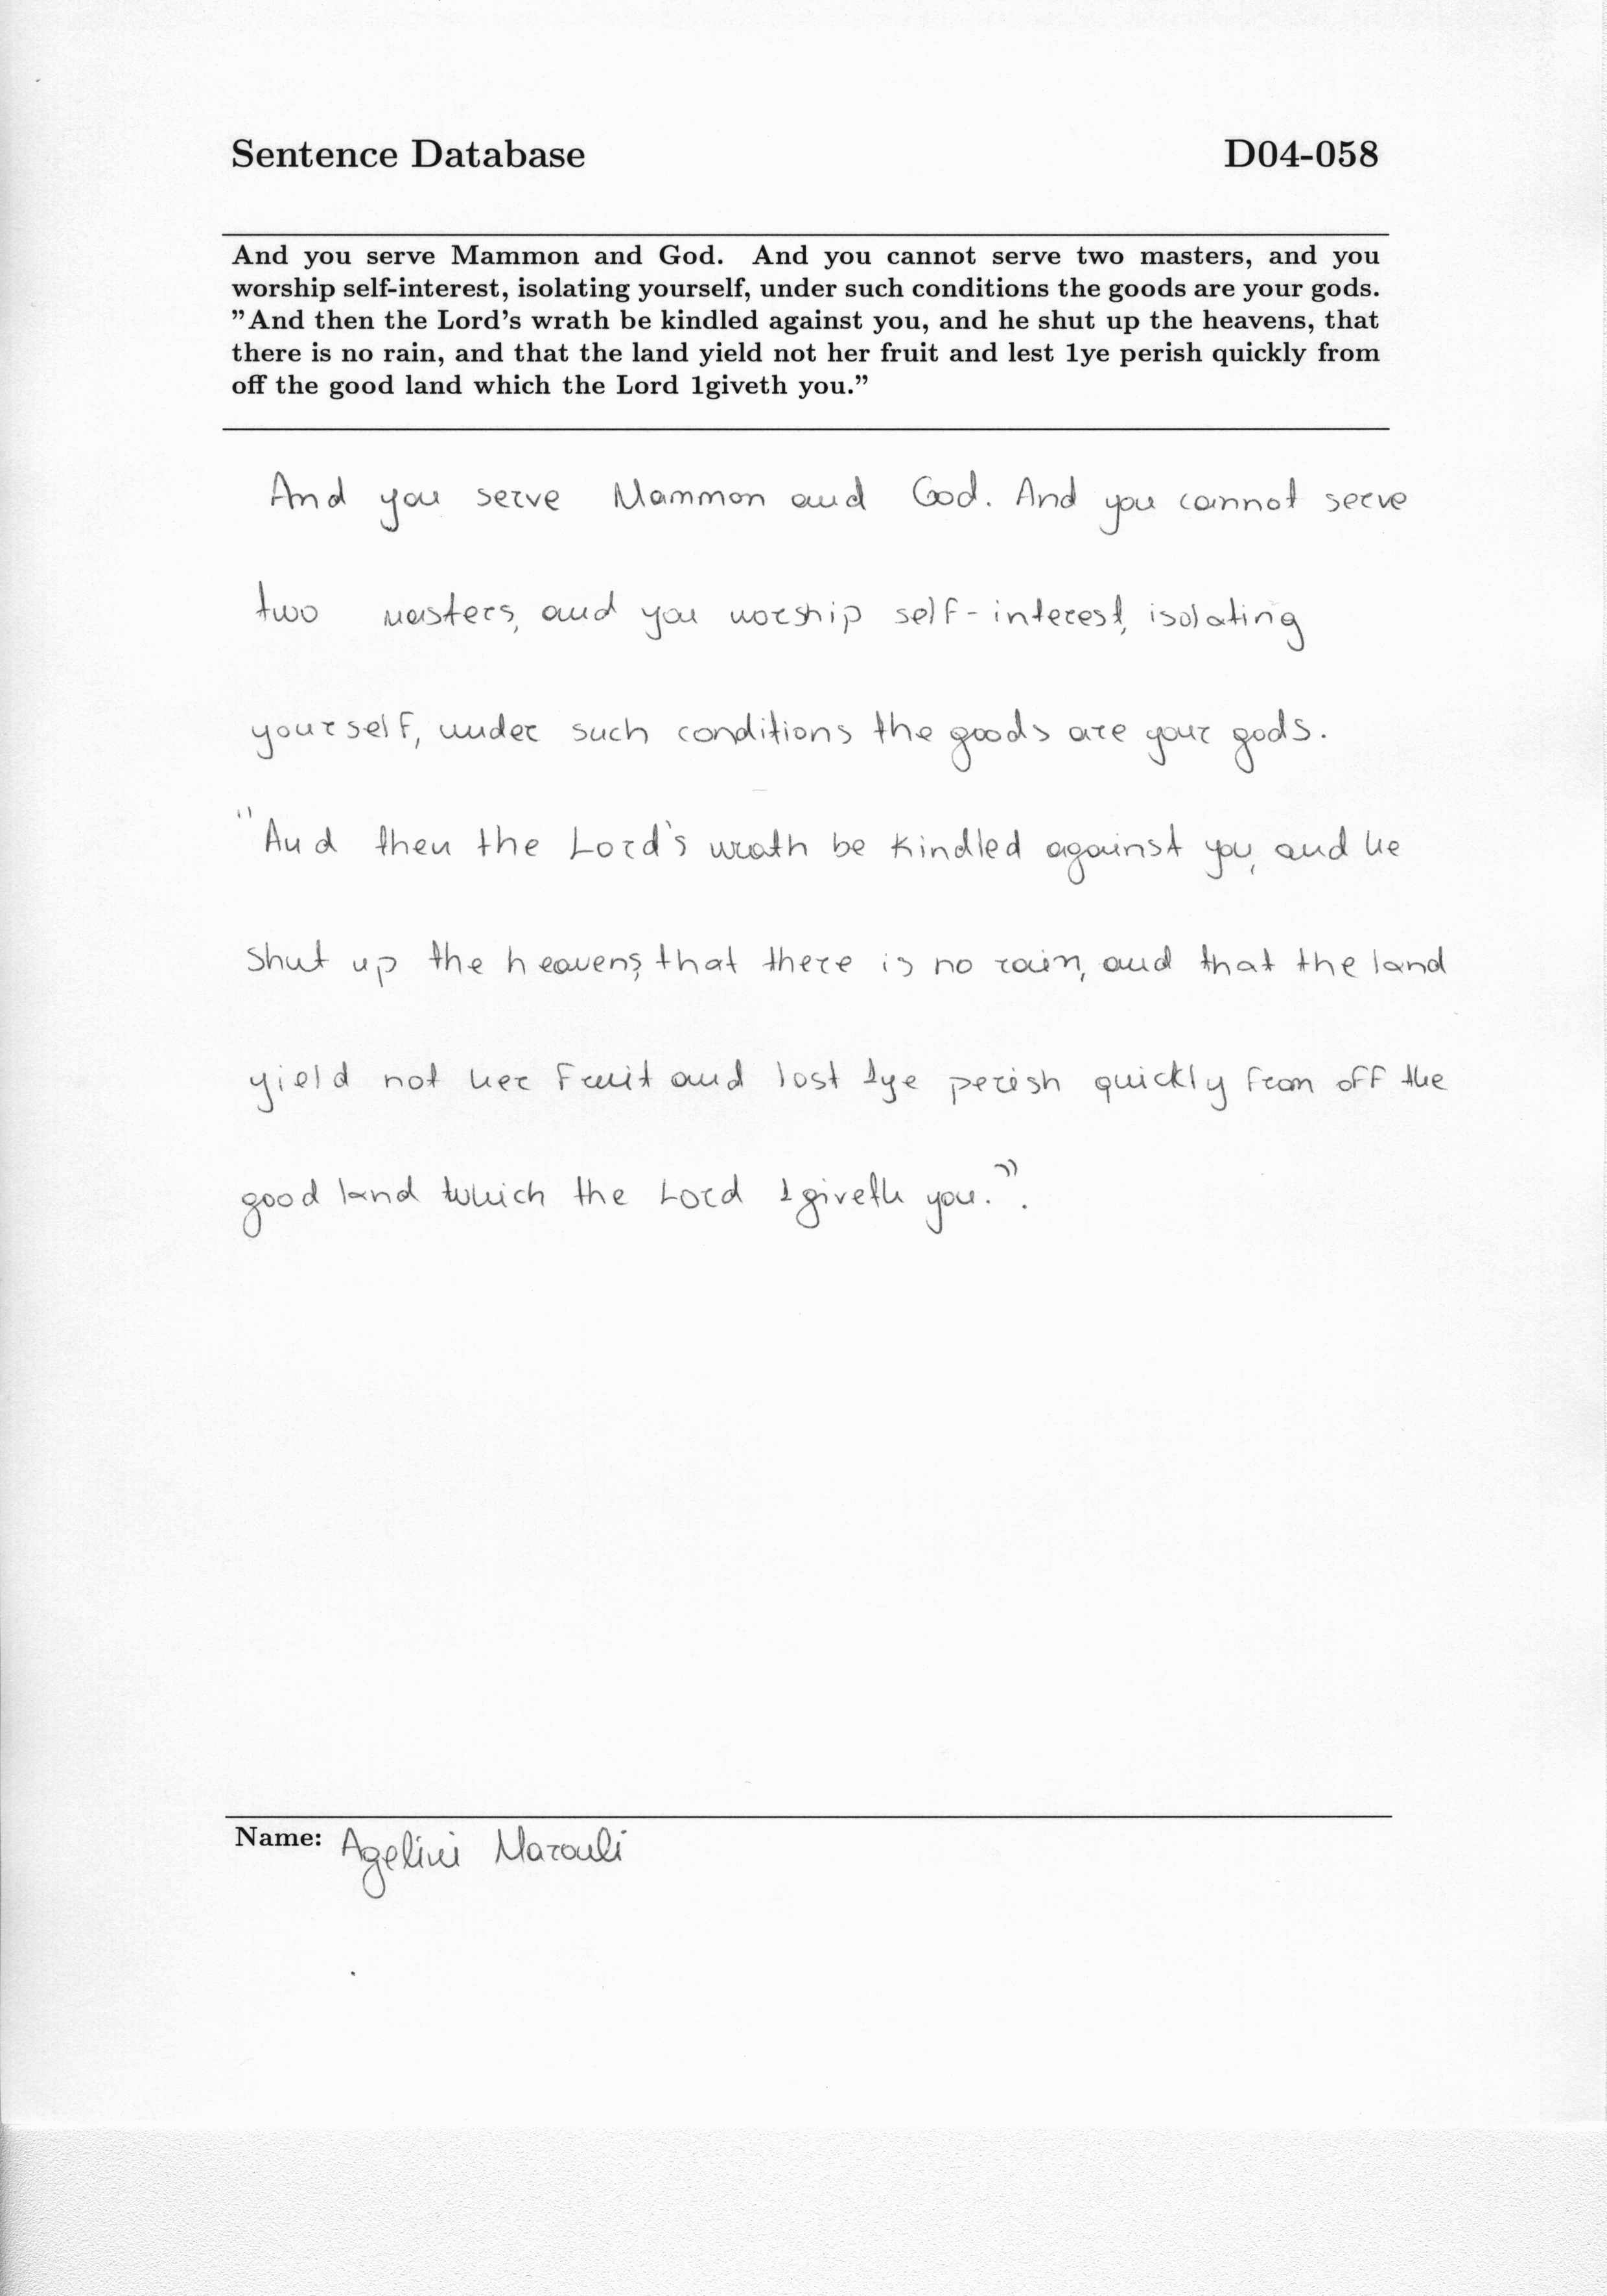 Sentence Database D04-058
And you serve Mammon and God. And you cannot serve two masters, and you
worship self-interest, isolating yourself, under such conditions the goods are your gods.
"And then the Lord's wrath be kindled against you, and he shut up the heavens, that
there is no rain, and that the land yield not her fruit and lest 1ye perish quickly from
off the good land which the Lord 1giveth you."
And you serve Mammon and God. And you cannot serve
two masters, and you worship self-interest, isolating
yourself, under such conditions the goods are your gods.
"And then the Lord's wrath be kindled against you, and he
shut up the heavens, that there is no rain, and that the land
yield not her fruit and lost 1ye perish quickly from off the
good land which the Lord 1giveth you.".
Name: Agelini Marouli